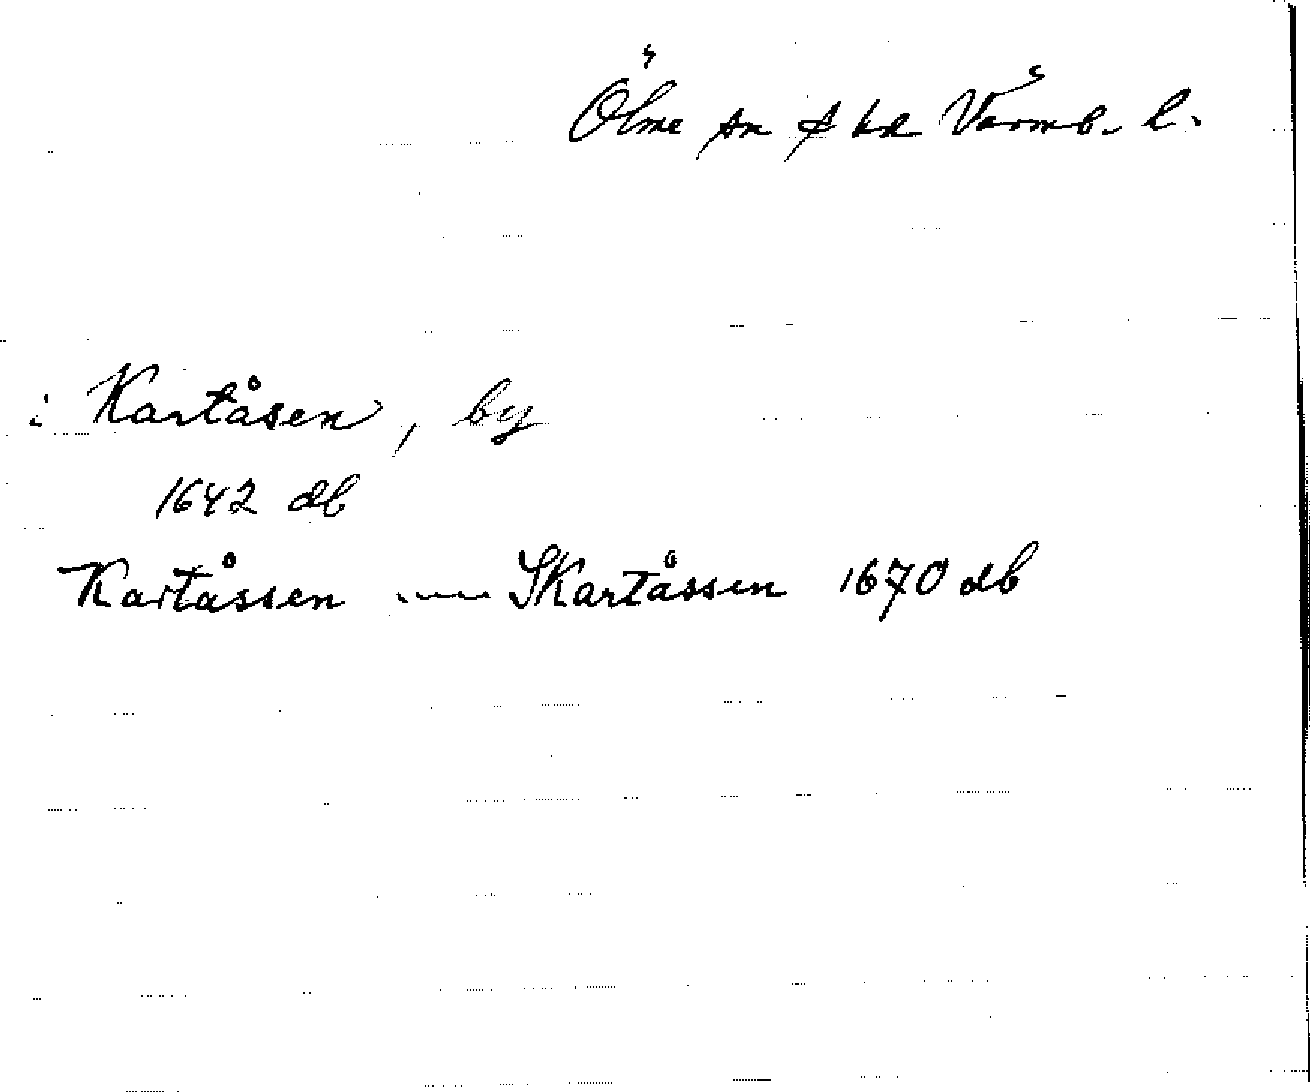 Ölme sn o hd Värml. l.
: Kartåsen, by
1642 db
Kartåssen ---- Skartåssen 1670 db